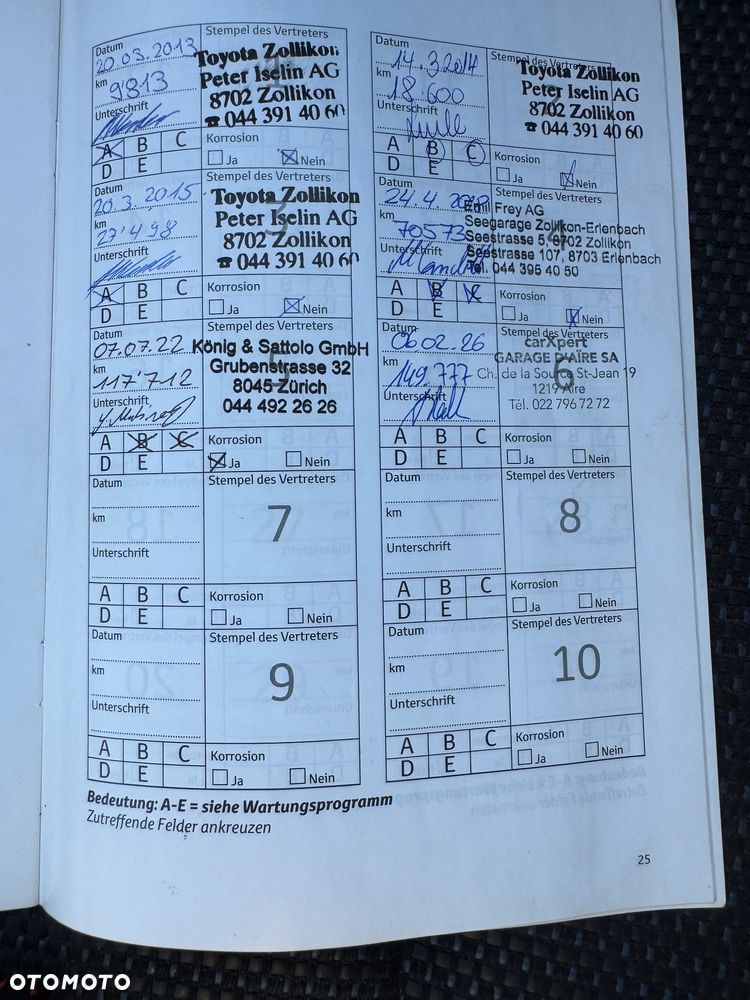 Datum
20.03.2013
km
9'813
Unterschrift
Stempel des Vertreters
Toyota Zollikon
Peter Iselin AG
8702 Zollikon
☎ 044 391 40 60
A B C
D E
Korrosion
Ja Nein
Datum
14.3.2014
km
18'600
Unterschrift
Stempel des Vertreters
Toyota Zollikon
Peter Iselin AG
8702 Zollikon
☎ 044 391 40 60
A B C
D E
Korrosion
Ja Nein
Datum
20.3.2015
km
27'498
Unterschrift
Stempel des Vertreters
3
Toyota Zollikon
Peter Iselin AG
8702 Zollikon
☎ 044 391 40 60
A B C
D E
Korrosion
Ja Nein
Datum
24.4
km
70573
Unterschrift
Stempel des Vertreters
Emil Frey AG
Seegarage Zollikon-Erlenbach
Seestrasse 5, 8702 Zollikon
Seestrasse 107, 8703 Erlenbach
Tel. 044 395 40 50
A B C
D E
Korrosion
Ja Nein
Datum
07.07.22
km
117'712
Unterschrift
Stempel des Vertreters
5
König & Sattolo GmbH
Grubenstrasse 32
8045 Zürich
044 492 26 26
A B C
D E
Korrosion
Ja Nein
Datum
06.02.26
km
149.777
Unterschrift
Stempel des Vertreters
6
carXpert
GARAGE D'AÏRE SA
Ch. de la Source St-Jean 19
1219 Aïre
Tél. 022 796 72 72
A B C
D E
Korrosion
Ja Nein
Datum
km
Unterschrift
Stempel des Vertreters
7
A B C
D E
Korrosion
Ja Nein
Datum
km
Unterschrift
Stempel des Vertreters
8
A B C
D E
Korrosion
Ja Nein
Datum
km
Unterschrift
Stempel des Vertreters
9
A B C
D E
Korrosion
Ja Nein
Datum
km
Unterschrift
Stempel des Vertreters
10
A B C
D E
Korrosion
Ja Nein
Bedeutung: A-E = siehe Wartungsprogramm
Zutreffende Felder ankreuzen
25
OTOMOTO